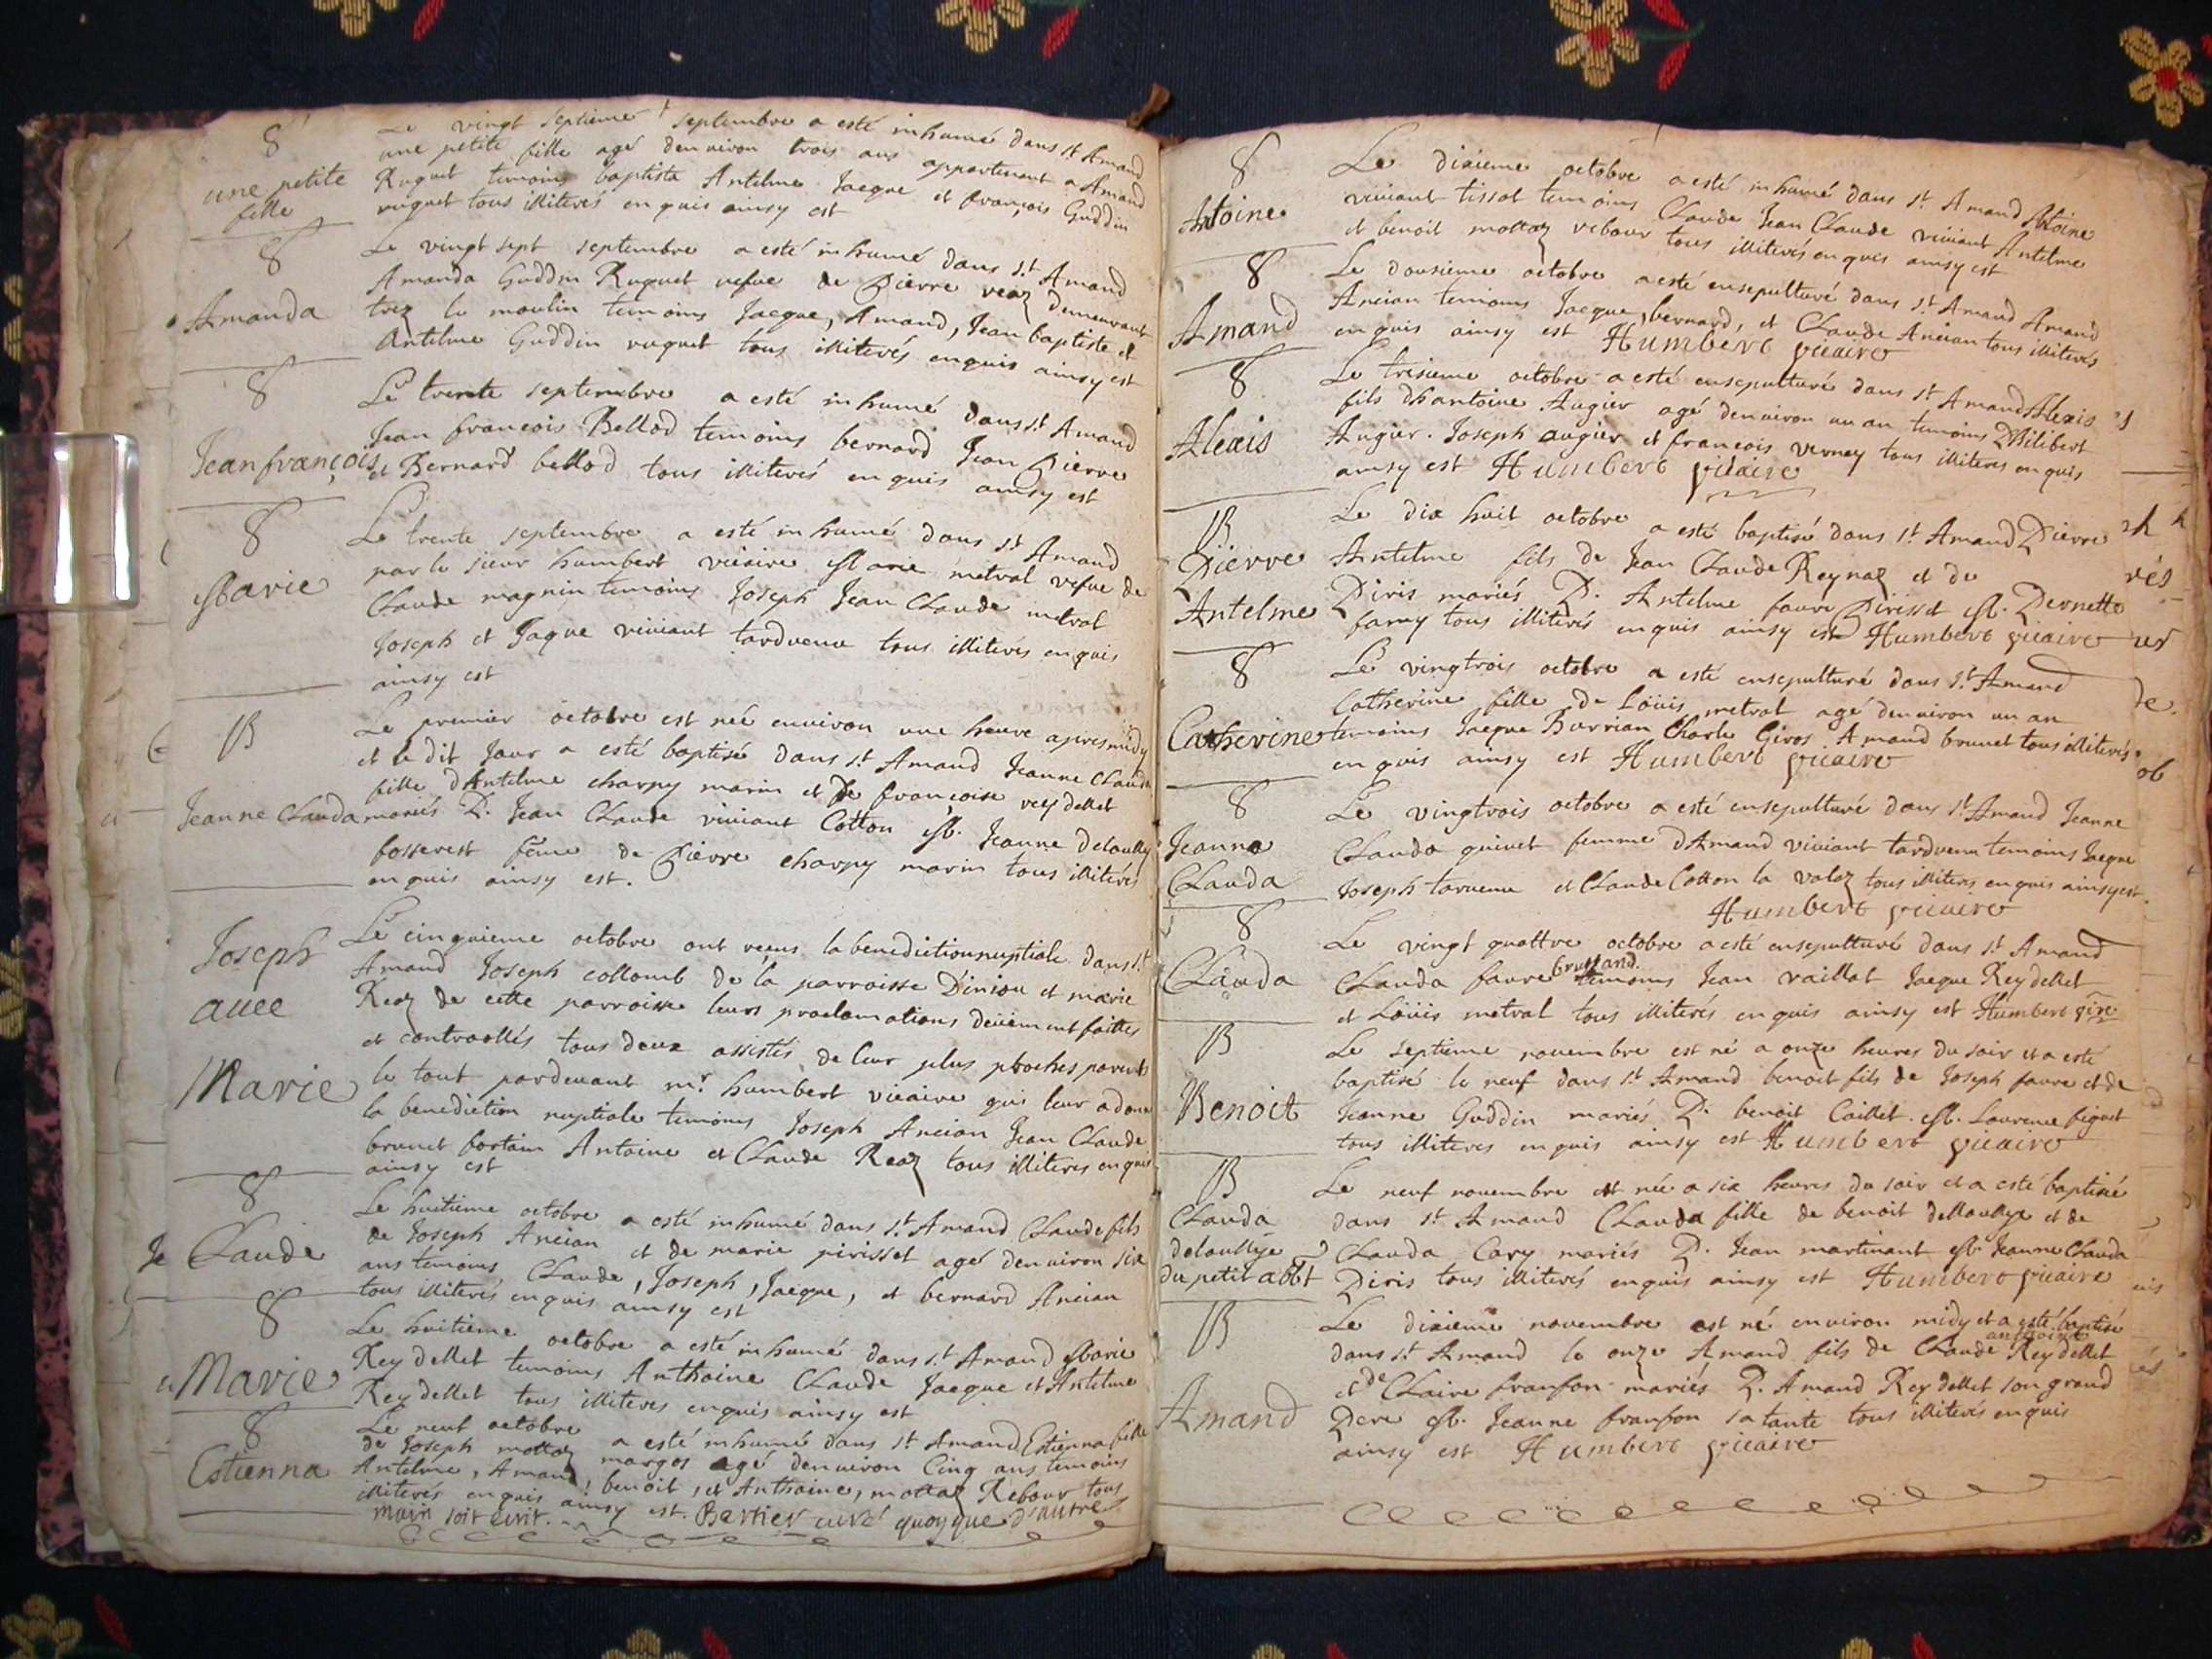 8
une petite
fille
Le vingt septieme septembre a esté inhumé dans st Amand
une petite fille agé denviron trois ans appartenant a Amand
Ruguet temoins baptista Antelme Jacque et françois Guddin
ruguet tous illiterés enquis ainsy est
8
Amanda
Le vingt sept septembre a esté inhumé dans st Amand
Amanda Guddin Ruguet vefve de Pierre reaz demeurant
lez le moulin temoins Jacque, Amand, Jean baptiste et
Antelme Guddin ruguet tous illiterés enquis ainsy est
8
Jean françois
Le trente septembre a esté inhumé dans st Amand
Jean françois Bellod temoins bernard Jean Pierre
et Bernard bellod tous illiterés enquis ainsy est
8
Marie
Le trente septembre a esté inhumé dans st Amand
par le sieur humbert vicaire Marie metral vefve de
Claude magnin temoins Joseph Jean Claude metral
Joseph et Jaque viviant tardvenu tous illiterés enquis
ainsy est
B
Jeanne Clauda
Le premier octobre est née environ une heure apres midy
et le dit Jour a esté baptisé dans st Amand Jeanne Clauda
fille dAntelme charpy marin et de françoise reydellet
mariés P. Jean Claude viviant Cotton M. Jeanne delaully
bosserest feme de Pierre charpy marin tous illiterés
enquis ainsy est.
Joseph
avec
Marie
Le cinquieme octobre ont reçus la benediction nuptiale dans st
Amand Joseph collomb de la parroisse Diniou et marie
Reaz de cette parroisse leurs proclamations deüement faittes
et controollés tous deux assistés de leur plus proches parents
le tout pardevant mr humbert vicaire qui leur a donné
la benediction nuptiale temoins Joseph Ancian Jean Claude
brunet bortain Antoine et Claude Reaz tous illiteres enquis
ainsy est
8
Claude
Le huitieme octobre a esté inhumé dans st Amand Claude fils
de Joseph Ancian et de marie pirisset agé denviron six
ans temoins Claude, Joseph, Jacque, et bernard Ancian
tous illiterés enquis ainsy est
8
Marie
Le huitieme octobre a esté inhumé dans st Amand Marie
Reydellet temoins Anthoine Claude Jacque et Antelme
Reydellet tous illiteres enquis ainsy est
8
Estienna
Le neuf octobre a esté inhumé dans st Amand Estienna fille
de Joseph mottaz margos agé denviron Cinq ans temoins
Antelme, Amand, benoit, et Anthoine, mottaz Rebour tous
illiterés enquis ainsy est. Bertier curé quoy que d'autre
main soit écrit.
8
Antoine
Le dixieme octobre a esté inhumé dans st Amand Antoine
viviant tissot temoins Claude Jean Claude viviant Antelme
et benoit mottaz rebour tous illiterés enquis ainsy est
8
Amand
Le dousieme octobre a esté ensepulturé dans st Amand Amand
Ancian temoins Jacque, bernard, et Claude Ancian tous illiterés
enquis ainsy est Humbert vicaire
8
Alexis
Le tresieme octobre a esté ensepulturé dans st Amand Alexis
fils dhantoine Augier agé denviron un an temoins Philibert
Augier. Joseph augier et françois verney tous illiteres enquis
ainsy est Humbert vicaire
B
Pierre
Antelme
Le dix huit octobre a esté baptisé dans st Amand Pierre
Antelme fils de Jean Claude Reynaz et de
Piris mariés P. Antelme favre Pirisset M. Pernette
famy tous illiterés enquis ainsy est Humbert vicaire
8
Catherine
Le vingtrois octobre a esté ensepulturé dans st Amand
Catherine fille de Loüis metral agé denviron un an
temoins Jacque Burrian Charle Giros Amand brunet tous illiterés
enquis ainsy est Humbert vicaire
8
Jeanne
Clauda
Le vingtrois octobre a esté ensepulturé dans st Amand Jeanne
Clauda quinet femme dAmand viviant tardvenu temoins Jacque
Joseph tarvenu et Claude Cotton la valaz tous illiteres enquis ainsy est.
Humbert vicaire
8
Clauda
Le vingt quattre octobre a esté ensepulturé dans st Amand
Clauda favre brussand. temoins Jean vaillat Jacque Reydellet
et Loüis metral tous illiterés enquis ainsy est Humbert vire
B
Benoit
Le septieme novembre est né a onze heures du soir et a esté
baptisé le neuf dans st Amand benoit fils de Joseph favre et de
Jeanne Guddin mariés P. benoit Caillet. M. Laurence figuet
tous illiteres enquis ainsy est Humbert vicaire
B
Clauda
delaullye
du petit abbt
Le neuf novembre est née a six heures du soir et a esté baptisé
dans st Amand Clauda fille de benoit dellaullye et de
Clauda Cary mariés P. Jean martinant M. Jeanne Clauda
Piris tous illiterés enquis ainsy est Humbert vicaire
B
Amand
Le dixieme novembre est né environ midy et a esté baptisé
dans st Amand le onze Amand fils de Claude anthoine Reydellet
et de Claire franson mariés P. Amand Reydellet son grand
Pere M. Jeanne franson sa tante tous illiterés enquis
ainsy est Humbert vicaire